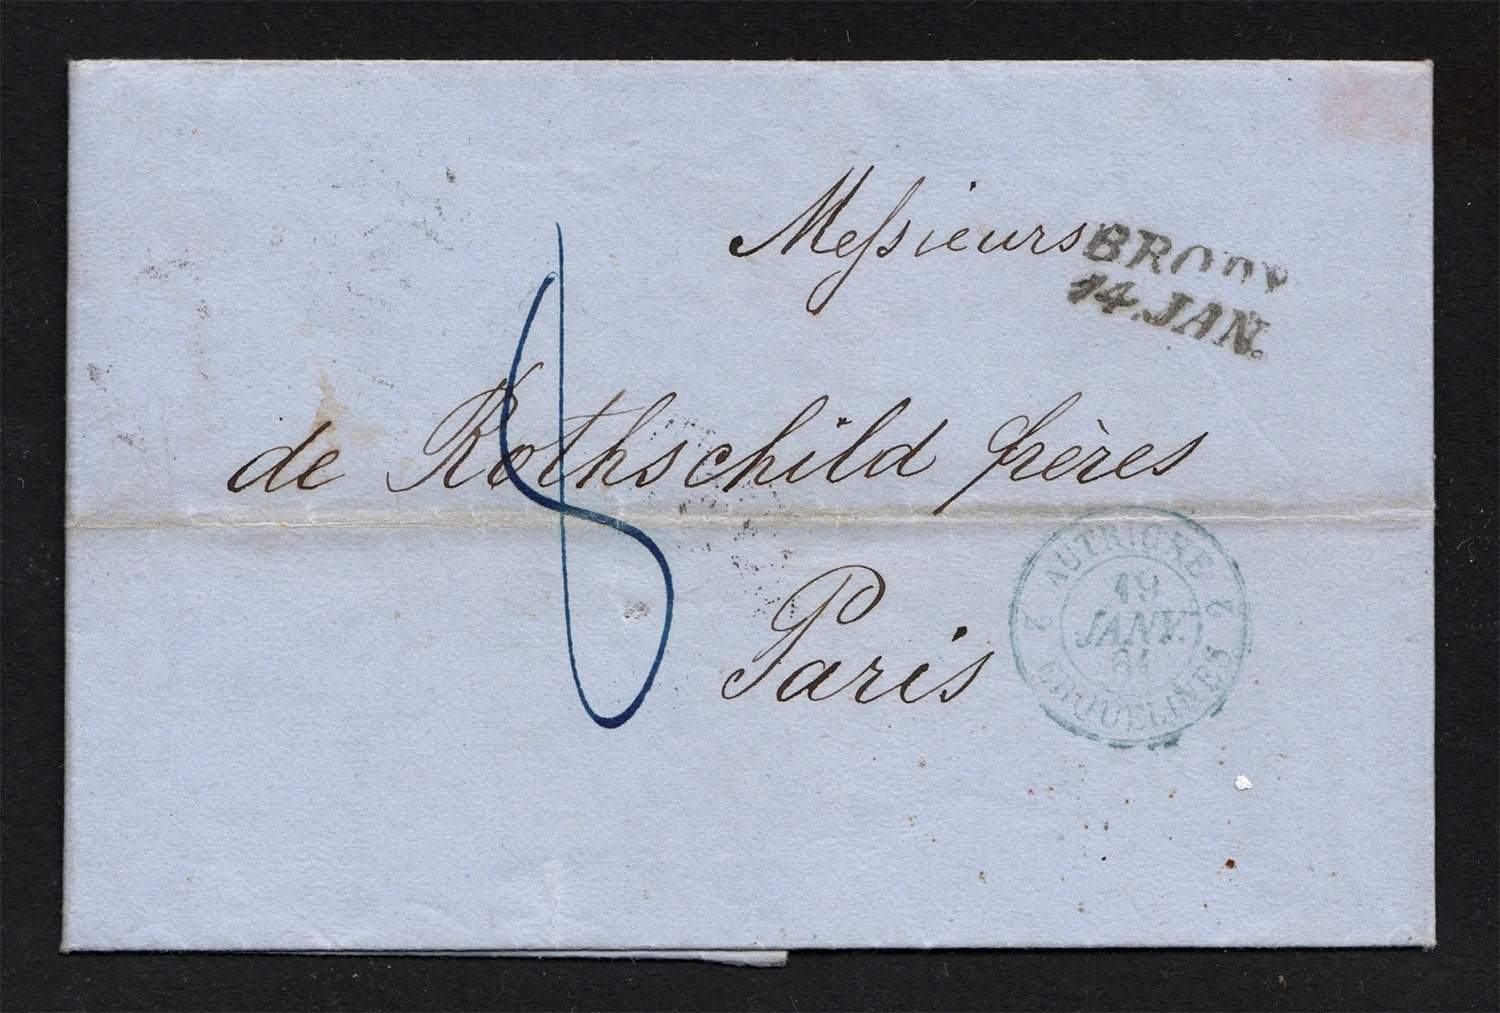 Meſsieurs
BRODY
14. JAN.
de Rothschild frères
Paris
8
2 AUTRICHE 2
19
JANV.
61
ERQUELINES